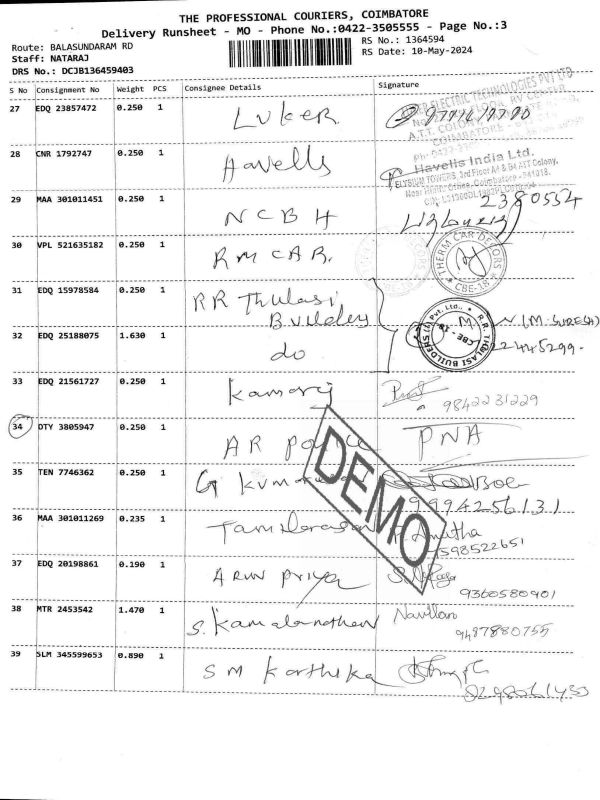 THE PROFESSIONAL COURIERS, COIMBATORE
Delivery Runsheet - MO - Phone No.:0422-3505555 - Page No.:3
Route: BALASUNDARAM RD
RS No.: 1364594
Staff: NATARAJ
RS Date: 10-May-2024
DRS No.: DCJB136459403
S No Consignment No Weight PCS Consignee Details Signature
27 EDQ 23857472 0.250 1 Luker
28 CNR 1792747 0.250 1 Havells
Havells India Ltd.
ELYSIUM TOWERS, 3rd Floor
29 MAA 301011451 0.250 1 NCBH 2380554
30 VPL 521635182 0.250 1 RM CAR.
THERM CAR DECORS
CBE-18
31 EDQ 15978584 0.250 1 RR Thulasi
Builders
R.R. THULASI BUILDERS (I) Pvt. Ltd.,
CBE - 18
(M. SURESH)
32 EDQ 25188075 1.630 1 do 22445299-
33 EDQ 21561727 0.250 1 Kamaraj
9842231229
34 DTY 3805947 0.250 1 AR PNA
DEMO
35 TEN 7746362 0.250 1 G
9994256131
36 MAA 301011269 0.235 1 Tamilarasan
37 EDQ 20198861 0.190 1 Arun priya
9360580901
38 MTR 2453542 1.470 1 S. Kamalanathan
9487880755
39 SLM 345599653 0.890 1 SM Karthika